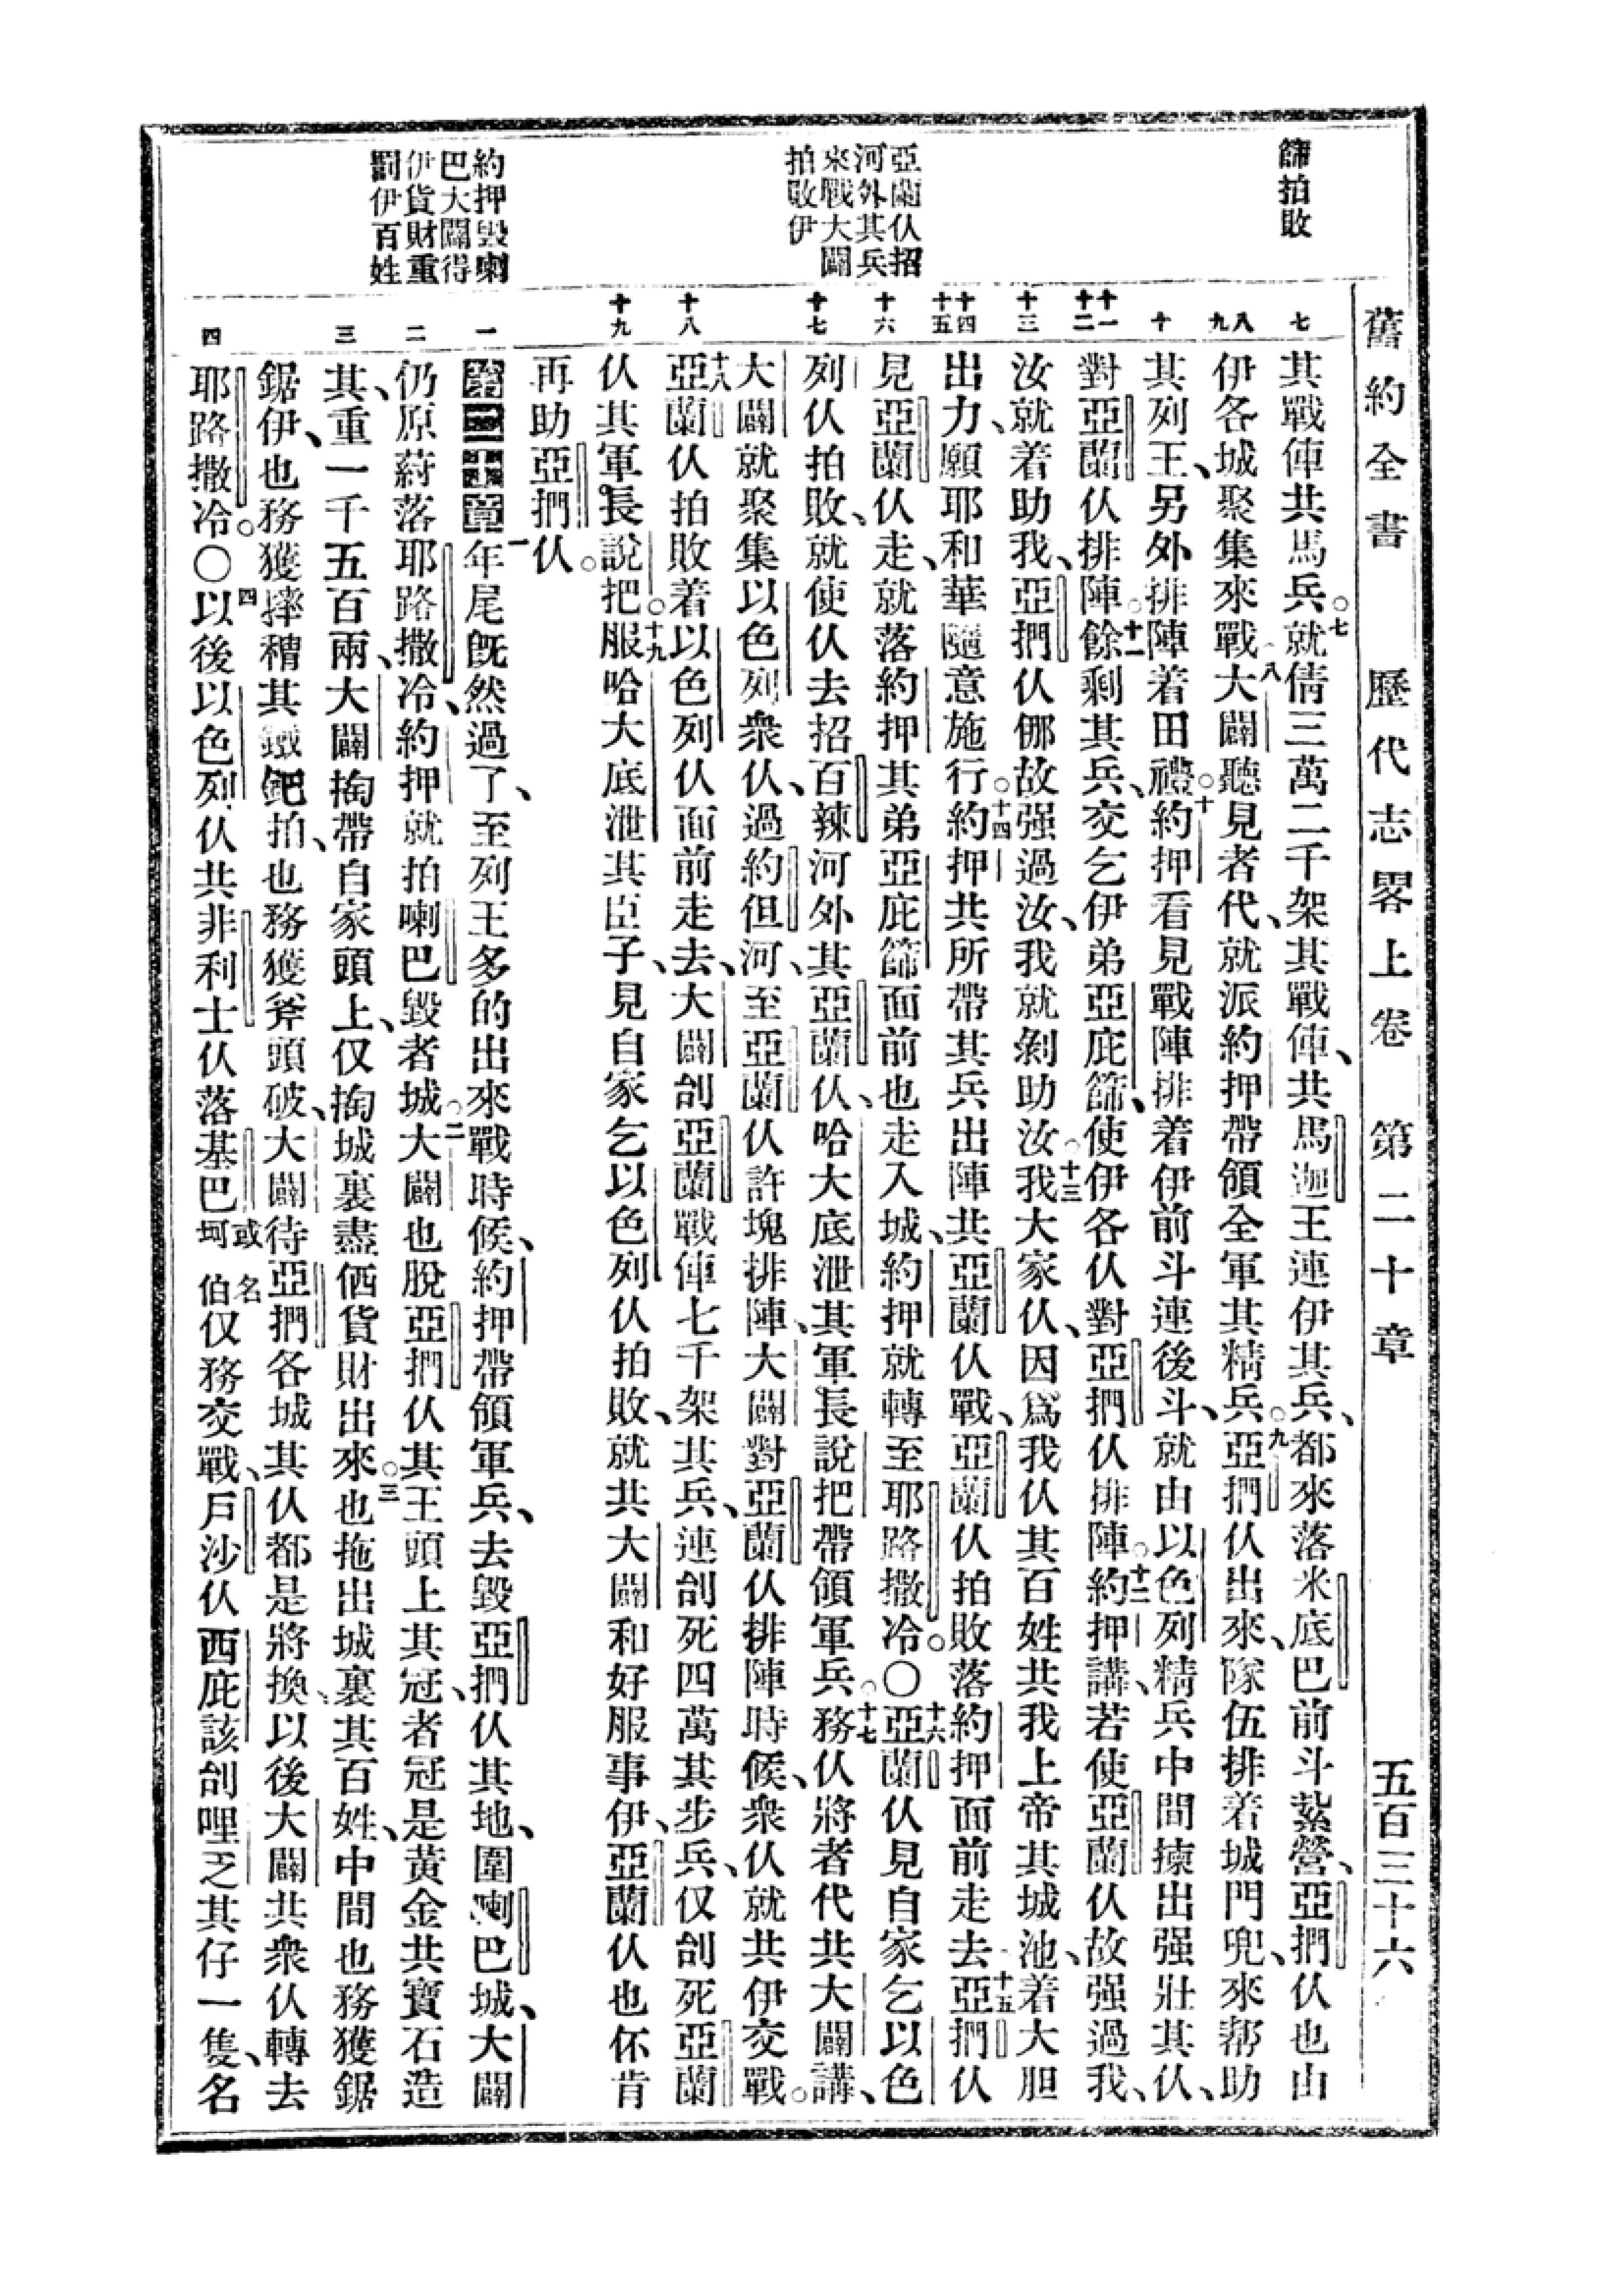 舊約全書 歷代志畧上卷 第二十章 五百三十六
篩拍敗
亞蘭伩招
河外其兵
來戰大闢
拍敗伊
約押毁喇
巴大闢得
伊貨財重
罰伊百姓
七
八
九
十
十一
十二
十三
十四
十五
十六
十七
十八
十九
一
二
三
四
其戰俥共馬兵。七就倩三萬二千架其戰俥、共馬迦王連伊其兵、都來落米底巴前斗紮營、亞捫伩也由
伊各城聚集來戰八大闢聽見者代、就派約押帶領全軍其精兵。九亞捫伩出來、隊伍排着城門兜、來幫助
其列王、另外排陣着田禮。十約押看見戰陣排着伊前斗連後斗、就由以色列精兵中間揀出强壯其伩、
對亞蘭伩排陣。十一餘剩其兵、交乞伊弟亞庇篩、使伊各伩對亞捫伩排陣。十二約押講、若使亞蘭伩故强過我、
汝就着助我、亞捫伩㑚故强過汝、我就剃助汝。十三我大家伩、因爲我伩其百姓共我上帝其城池、着大胆
出力、願耶和華隨意施行。十四約押共所帶其兵出陣、共亞蘭伩戰、亞蘭伩拍敗落約押面前走去、十五亞捫伩
見亞蘭伩走、就落約押其弟亞庇篩面前也走入城、約押就轉至耶路撒冷。〇十六亞蘭伩見自家乞以色
列伩拍敗、就使伩去招百辣河外其亞蘭伩、哈大底泄其軍長說把帶領軍兵。十七務伩將者代共大闢講、
大闢就聚集以色列衆伩、過約但河、至亞蘭伩許塊排陣、大闢對亞蘭伩排陣時候、衆伩就共伊交戰。
十八亞蘭伩拍敗着以色列伩面前走去、大闢刣亞蘭戰俥七千架其兵、連刣死四萬其步兵、仅刣死亞蘭
伩其軍長說把。十九服哈大底泄其臣子、見自家乞以色列伩拍敗、就共大闢和好服事伊、亞蘭伩也伓肯
再助亞捫伩。
第二十章一年尾旣然過了、至列王多的出來戰時候、約押帶領軍兵、去毀亞捫伩其地、圍喇巴城、大闢
仍原葤落耶路撒冷、約押就拍喇巴毀者城。二大闢也脫亞捫伩其王頭上其冠、者冠是黄金共寶石造
其、重一千五百兩、大闢掏帶自家頭上、仅掏城裏盡価貨財出來。三也拖出城裏其百姓、中間也務獲鋸
鋸伊、也務獲摔穳其鐵鈀拍、也務獲斧頭破、大闢待亞捫各城其伩都是將換、以後大闢共衆伩轉去
耶路撒冷。〇四以後以色列伩共非利士伩落基巴或名坷伯仅務交戰、戶沙伩西庇該刣哩乏其仔一隻、名